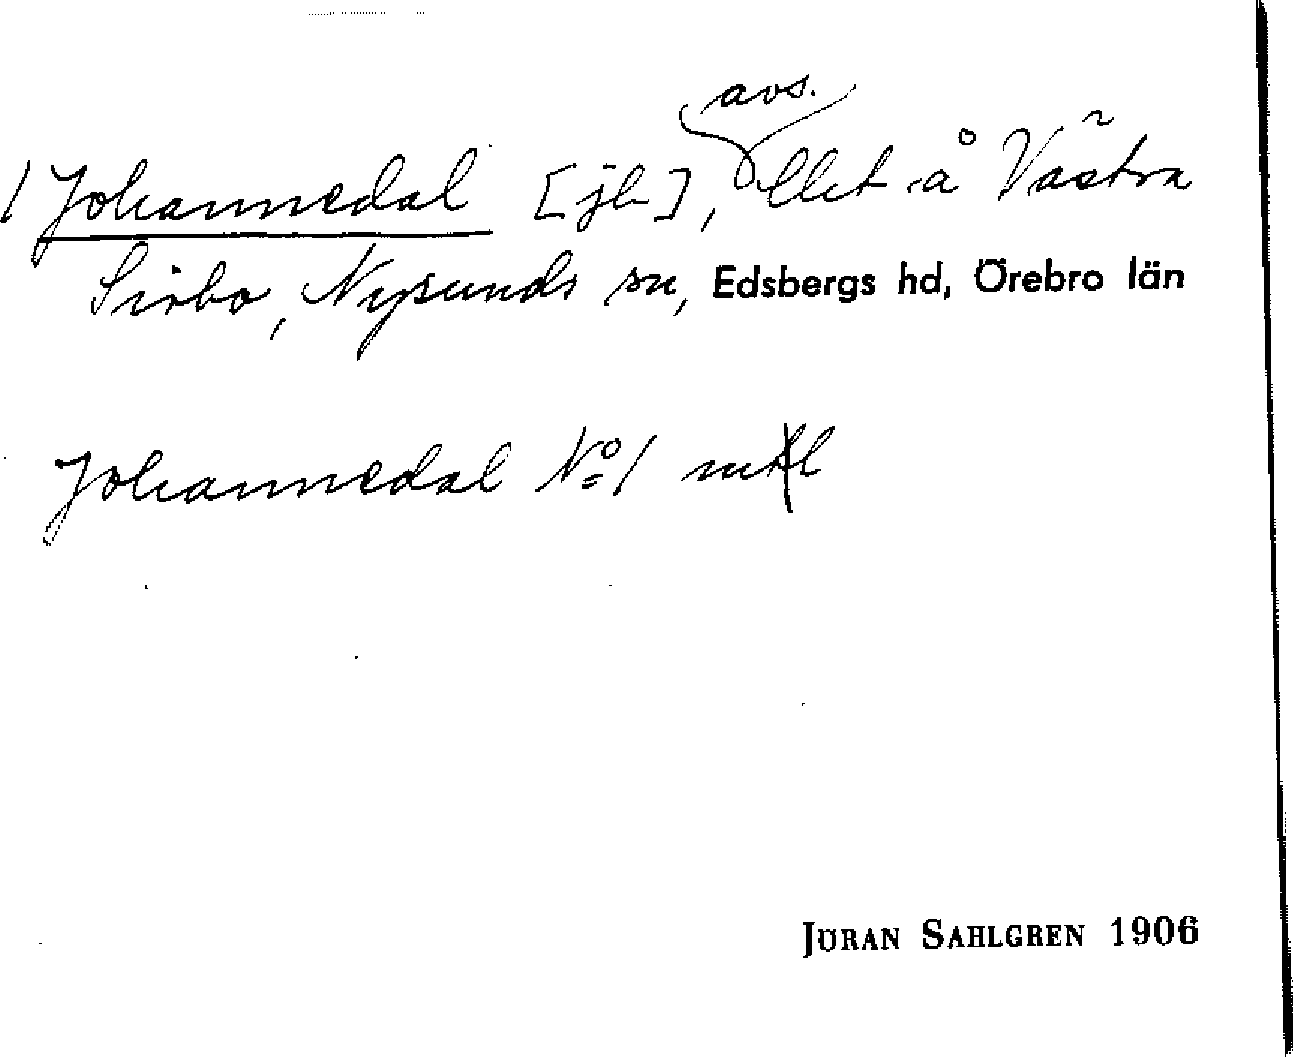 avs.
/ Johannedal [jb], llet å Västra
Sirbo, Nysunds sn, Edsbergs hd, Örebro län
Johannedal No 1 mtl
JÖRAN SAHLGREN 1906